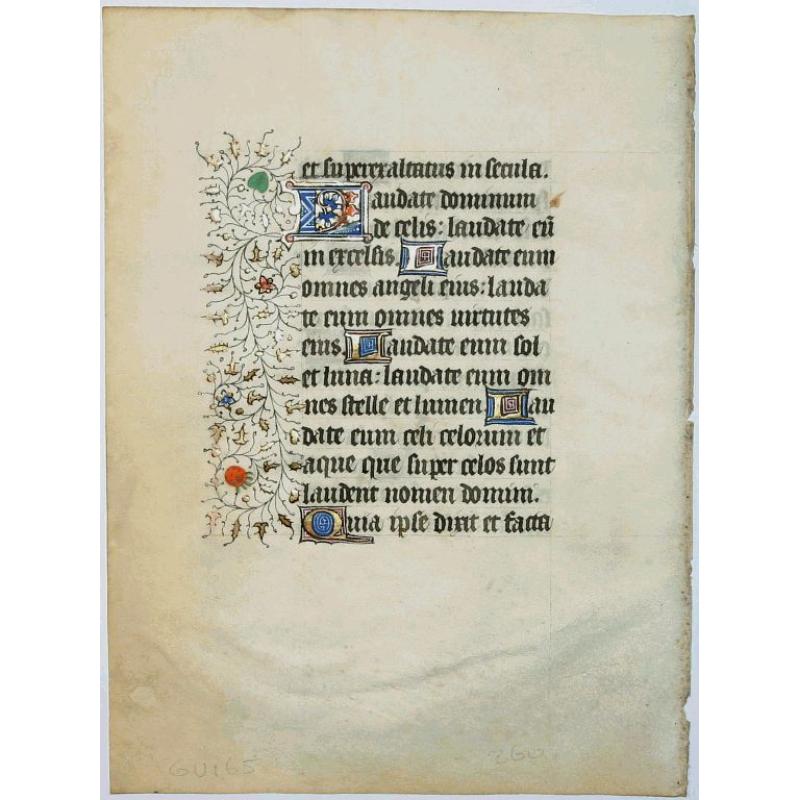 et superexaltatus in secula.
Laudate dominum
de celis: laudate eū
in excelsis. Laudate eum
omnes angeli eius: lauda
te eum omnes uirtutes
eius. Laudate eum sol
et luna: laudate eum om
nes stelle et lumen Lau
date eum celi celorum et
aque que super celos sunt
laudent nomen domini.
Quia ipse dixit et facta
GU165
260